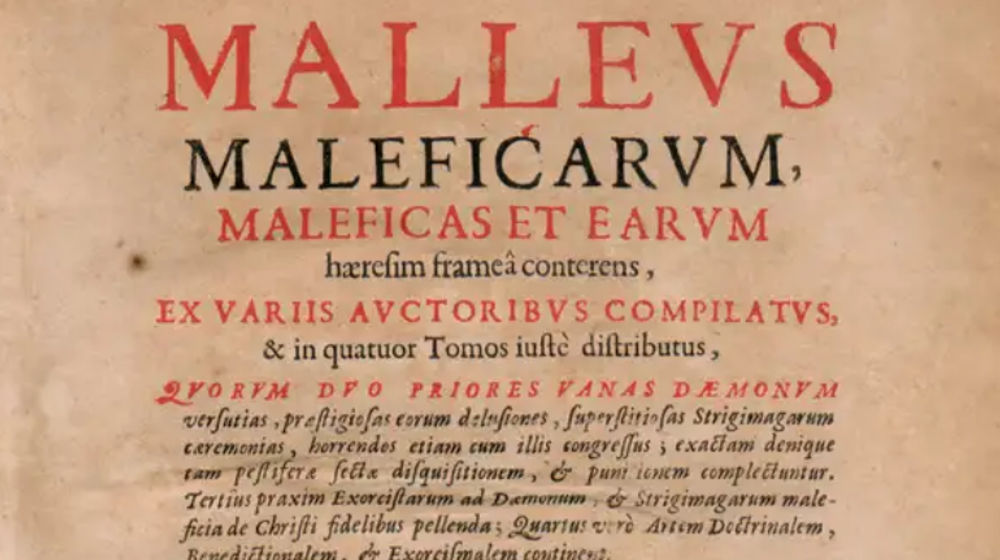 MALLEVS
MALEFICARVM,
MALEFICAS ET EARVM
hæreſim frameâ conterens,
EX VARIIS AVCTORIBVS COMPILATVS,
& in quatuor Tomos iuſtè diſtributus,
QVORVM DVO PRIORES VANAS DÆMONVM
verſutias, præſtigioſas eorum deluſiones, ſuperſtitioſas Strigimagarum
cæremonias, horrendos etiam cum illis congreſſus; exactam denique
tam peſtiferæ ſectæ diſquiſitionem, & punitionem complectuntur.
Tertius praxim Exorciſtarum ad Dæmonum, & Strigimagarum male-
ficia de Chriſti fidelibus pellenda; Quartus verò Artem Doctrinalem,
Benedictionalem, & Exorciſmalem continent.